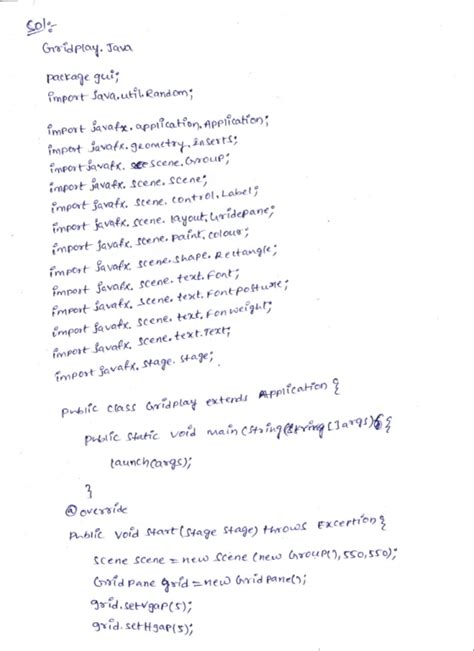 Sol:-
Gridplay.Java
package gui;
import Java.util.Random;
import javafx.application.Application;
import javafx.geometry.Inserts;
import javafx.scene.Group;
import javafx.scene.scene;
import javafx.scene.control.Label;
import javafx.scene.layout.Gridepane;
import javafx.scene.paint.colour;
import javafx.scene.shape.Rectangle;
import javafx.scene.text.Font;
import javafx.scene.text.Fontposture;
import javafx.scene.text.Fonweight;
import javafx.scene.text.Text;
import javafx.stage.stage;
public class Gridplay extends Application {
public static void main (String[]args) {
launch(args);
}
@override
public void start (stage stage) throws Exception {
scene scene = new scene (new Group(), 550, 550);
Grid pane grid = new Grid pane();
grid.setvgap(5);
grid.setHgap(5);